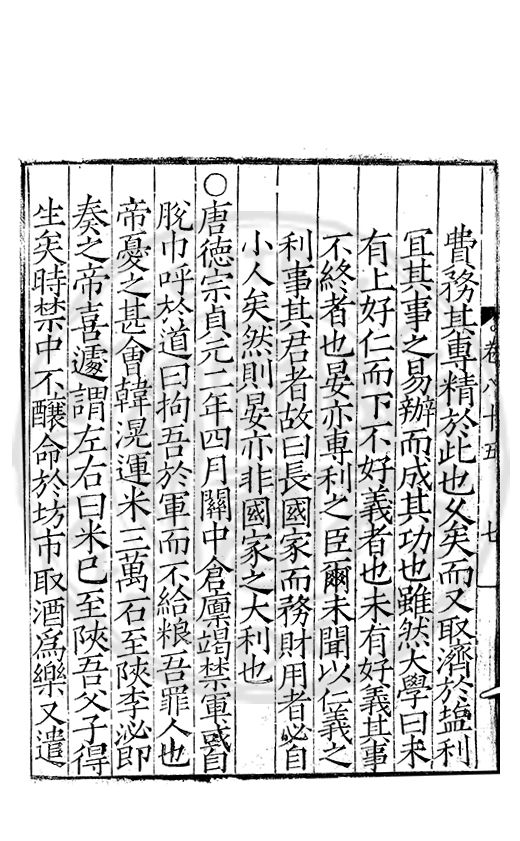 卷八十五 七
費務其專精於此也久矣而又取濟於塩利
冝其事之易辦而成其功也雖然大學曰未
有上好仁而下不好義者也未有好義其事
不終者也晏亦專利之臣爾未聞以仁義之
利事其君者故曰長國家而務財用者必自
小人矣然則晏亦非國家之大利也
○唐德宗貞元二年四月關中倉廪竭禁軍或自
脫巾呼於道曰拘吾於軍而不給粮吾罪人也
帝憂之甚會韓滉運米三萬石至陜李泌即
奏之帝喜遽謂左右曰米巳至陜吾父子得
生矣時禁中不釀命於坊市取酒爲樂又遣